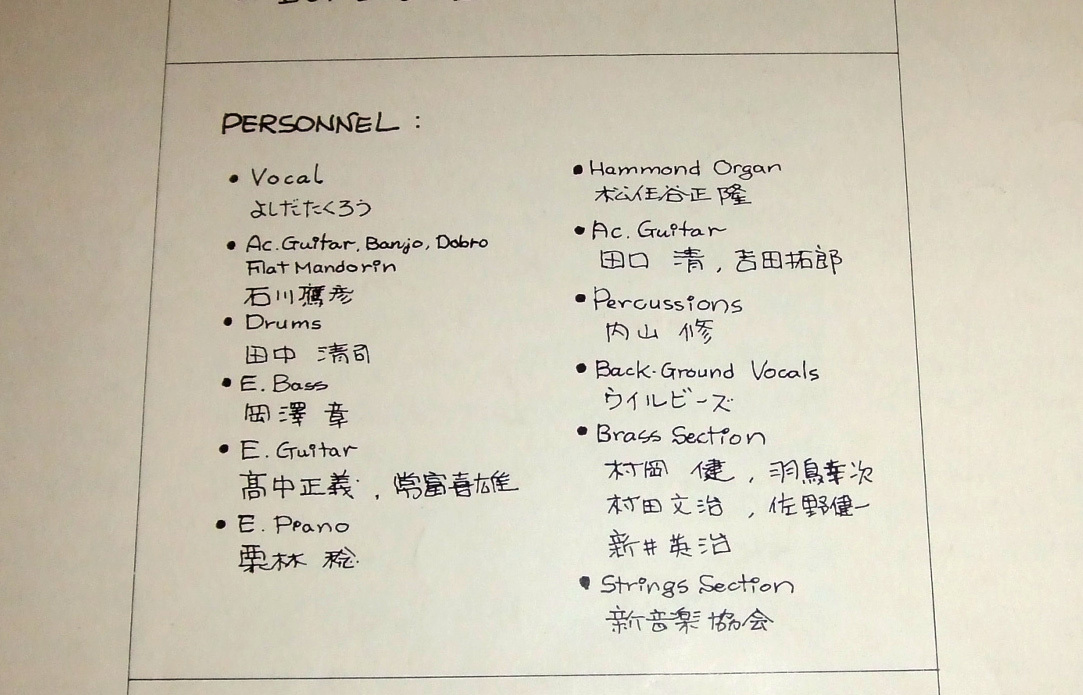 PERSONNEL :
• Vocal
よしだたくろう
• Ac. Guitar, Banjo, Dobro
Flat Mandorin
石川鷹彦
• Drums
田中 清司
• E. Bass
岡澤 章
• E. Guitar
高中正義, 常富喜雄
• E. Piano
栗林 稔
• Hammond Organ
松任谷正隆
• Ac. Guitar
田口 清, 吉田拓郎
• Percussions
内山 修
• Back-Ground Vocals
ウイルビーズ
• Brass Section
村岡 健, 羽鳥幸次
村田文治, 佐野健一
新井英治
• Strings Section
新音楽協会